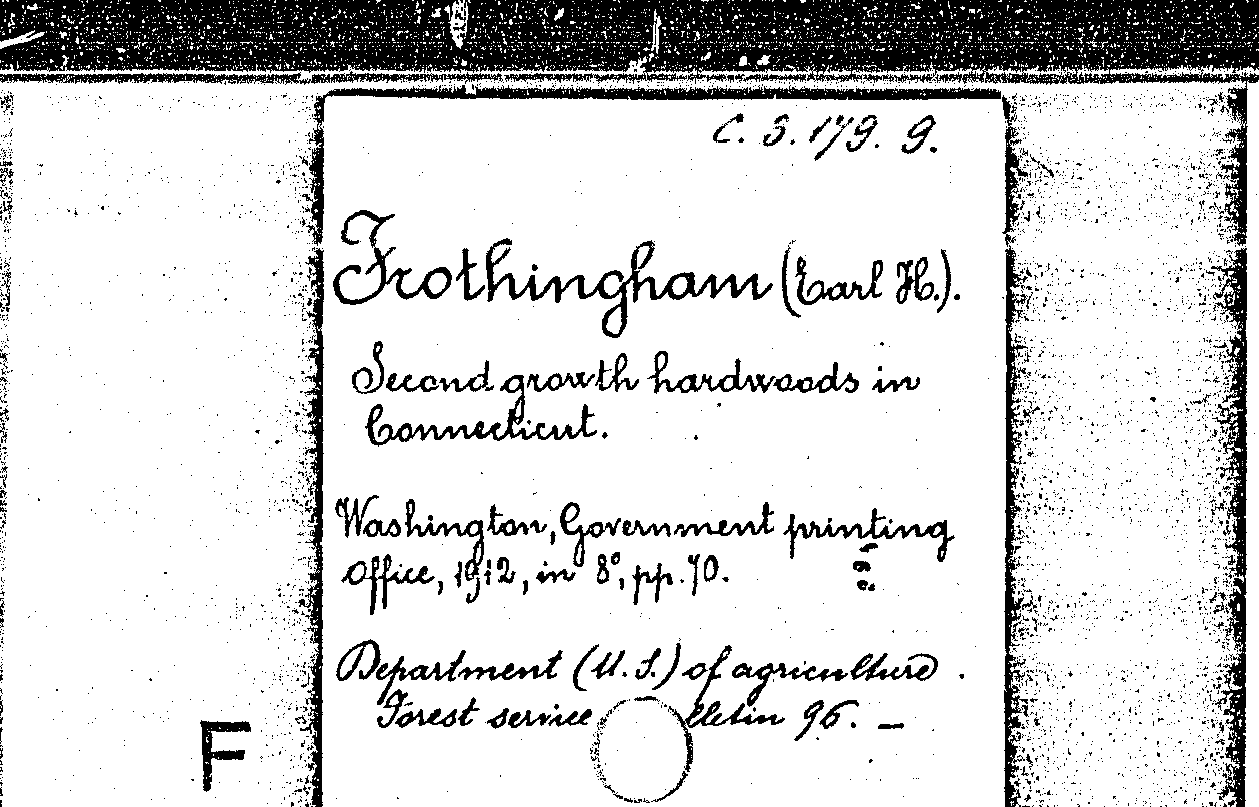 C. S. 179. 9.
Frothingham (Earl H.).
Second growth hardwoods in
Connecticut.
Washington, Government printing
office, 1912, in 8°, pp. 70.
Department (U. S.) of agriculture.
Forest service lletin 96. —
F